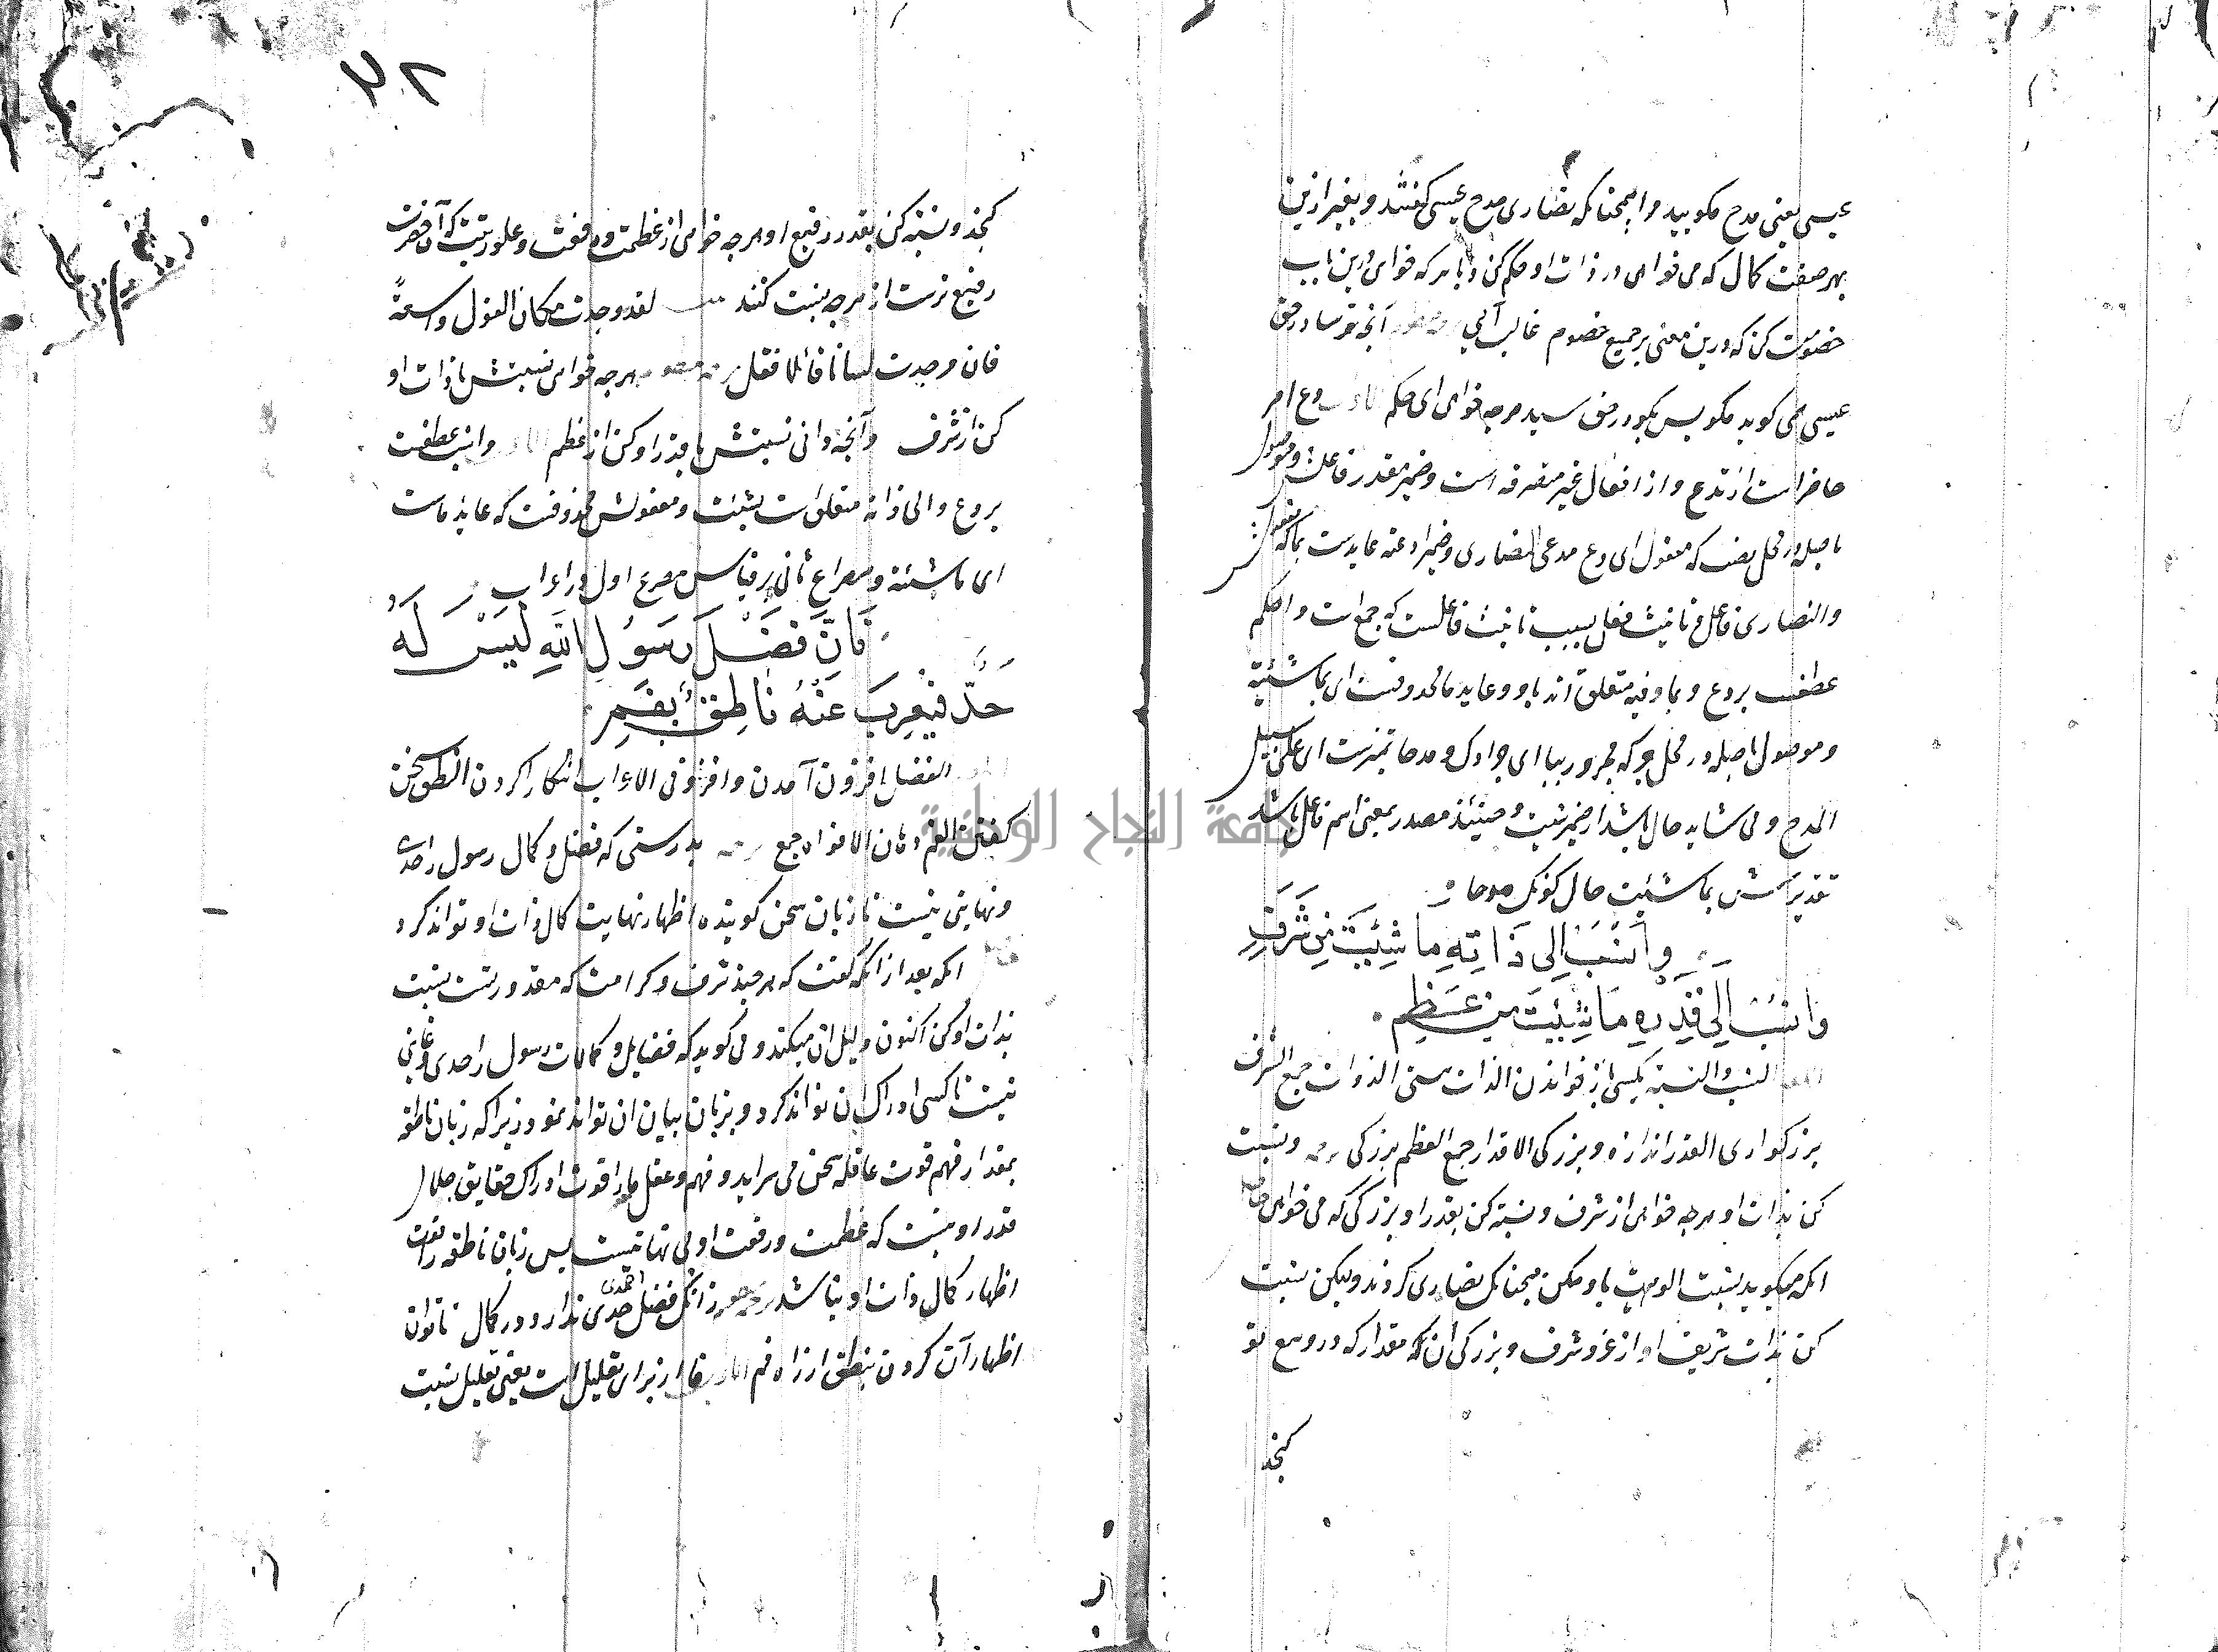 عیسی یعنی مدح مکویید او را همچنانکه نصاری مدح عیسی کفتند و بغیر ازین
بهر صفت کمال که می خواهی در ذات او حکم کن و با هر که خواهی درین باب
خصومت کن که درین معنی بر جمیع خصوم غالب آیی آنچه ترسا در حق
عیسی می کوید مکو پس بکو در حق سید هرچه خواهی ای حکم دع امر
حاضر است از تدع و از افعال غیر متصرفه است و ضمیر مقدر فاعلش و موصول
با صله در محل نصب که مفعول ای دع مدعی النصاری و ضمیر ادعته عایدست بما که مفعولش
والنصاری فاعل و تانیث فعل بسبب تانیث فاعلست که جمع است واحکم
عطف بر دع و بما وفیه متعلق اند باو و عاید ما محذوفست ای بما شئته
و موصول با صله در محل جر که مجرور ببا ای جوادک و مدحا تمیزست ای علی سبیل
المدح و می شاید حال باشد از ضمیر شیت و حینئذ مصدر بمعنی اسم فاعل باشد
تقدیرش بما شئیت حال کونک مادحا
وانسب الی ذاته ما شئیت من شرف
وانسب الی قدره ما شئیت من عظم
النسب والنسبة بکسی باز خواندن الذات هستی الذوات جمع الشرف
بزرکواری القدر اندازه و بزرکی الاقدار جمع العظم بزرکی و نسبت
کن بذات او هرچه خواهی از شرف و نسبة کن بقدر او بزرکی که می خواهی
انکه میکوید نسبت الوهیت باو مکن همچنانک نصاری کردند ولیکن نسبت
کن بذات شریف او از عز و شرف و بزرکی آن مقدار که در وسع تو
کنجد
کنجد و نسبة کن بقدر رفیع او هرچه خواهی از عظمت و رفعت و علو رتبت که آن حضرت
رفیع ترست از هرچه نسبت کنند لقد وجدت مکان القول واسعةً
فان وجدت لسانا قائلا فقل هرچه خواهی نسبتش با ذات او
کن از شرف و آنچه دانی نسبتش با قدر او کن از عظم وانسب عطفست
بر دع و الی ذاته متعلق است بشئت و مفعولش محذوفست که عاید ماست
ای ما شئته و مصراع ثانی بر قیاس مصرع اول در اعراب
فَاِنَّ فَضْلَ رَسُولِ اللهِ لَیْسَ لَهُ
حَدٌّ فَیُعْرِبَ عَنْهُ نَاطِقٌ بِفَمِ
الفضل افزون آمدن و افزونی الاعراب آشکارا کردن النطق سخن
کفتن الفم دهان الافواه جمع بدرستی که فضل و کمال رسول را حدی
و نهایتی نیست تا زبان سخن کوینده اظهار نهایت کمال ذات او تواند کرد
انکه بعد از انکه کفت که هر چند شرف و کرامت که مقدورتست نسبت
بذات او کن اکنون دلیل ان میکند و می کوید که فضایل و کمالات رسول را حدی و غایتی
نیست تا کسی ادراک ان تواند کرد و بزبان بیان ان تواند نمود زیرا که زبان ناطقه
بمقدار فهم قوت عاقله سخن می سراید و فهم و عقل ما را قوت ادراک حقایق جلال
قدر او نیست که عظمت و رفعت او بی نهایتست پس زبان ناطقه را قوت
اظهار کمال ذات او نباشد زانک فضل احمدی حدی ندارد در کمال تا توان
اظهار آن کردن بنطق از راه فم فا از برای تعلیل است یعنی تعلیل نسبت
جامعة النجاح الوطنية